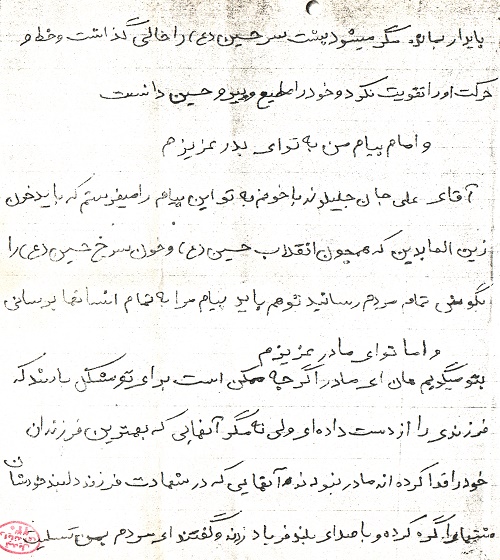 پایدار بماند مگر میشود پشت سر حسین (ع) را خالی گذاشت و خط و
حرکت او را تقویت نکرد و خود را مطیع و پیرو حسین دانست
و امام پیام من به تو ای پدر عزیزم
آقای علی جان با خونم به تو این پیام را میفرستم که باید خون
زین العابدین که همچون انقلاب حسین (ع) و خون سرخ حسین (ع) را
بگوش تمام مردم رسانید تو هم باید پیام مرا به تمام انسانها برسانی
و اما تو ای مادر عزیزم
بتو میگویم هان ای مادر اگر چه ممکن است برای تو مشکل باشد که
فرزندی را از دست داده ای ولی نه مگر آنهایی که بهترین فرزندان
خود را فدا کرده اند مادر نبودند آنهایی که در شهادت فرزند دلبند خودشان
را گره کرده و با صدای بلند فریاد زدند و گفتند ای مردم بمن تسلیت